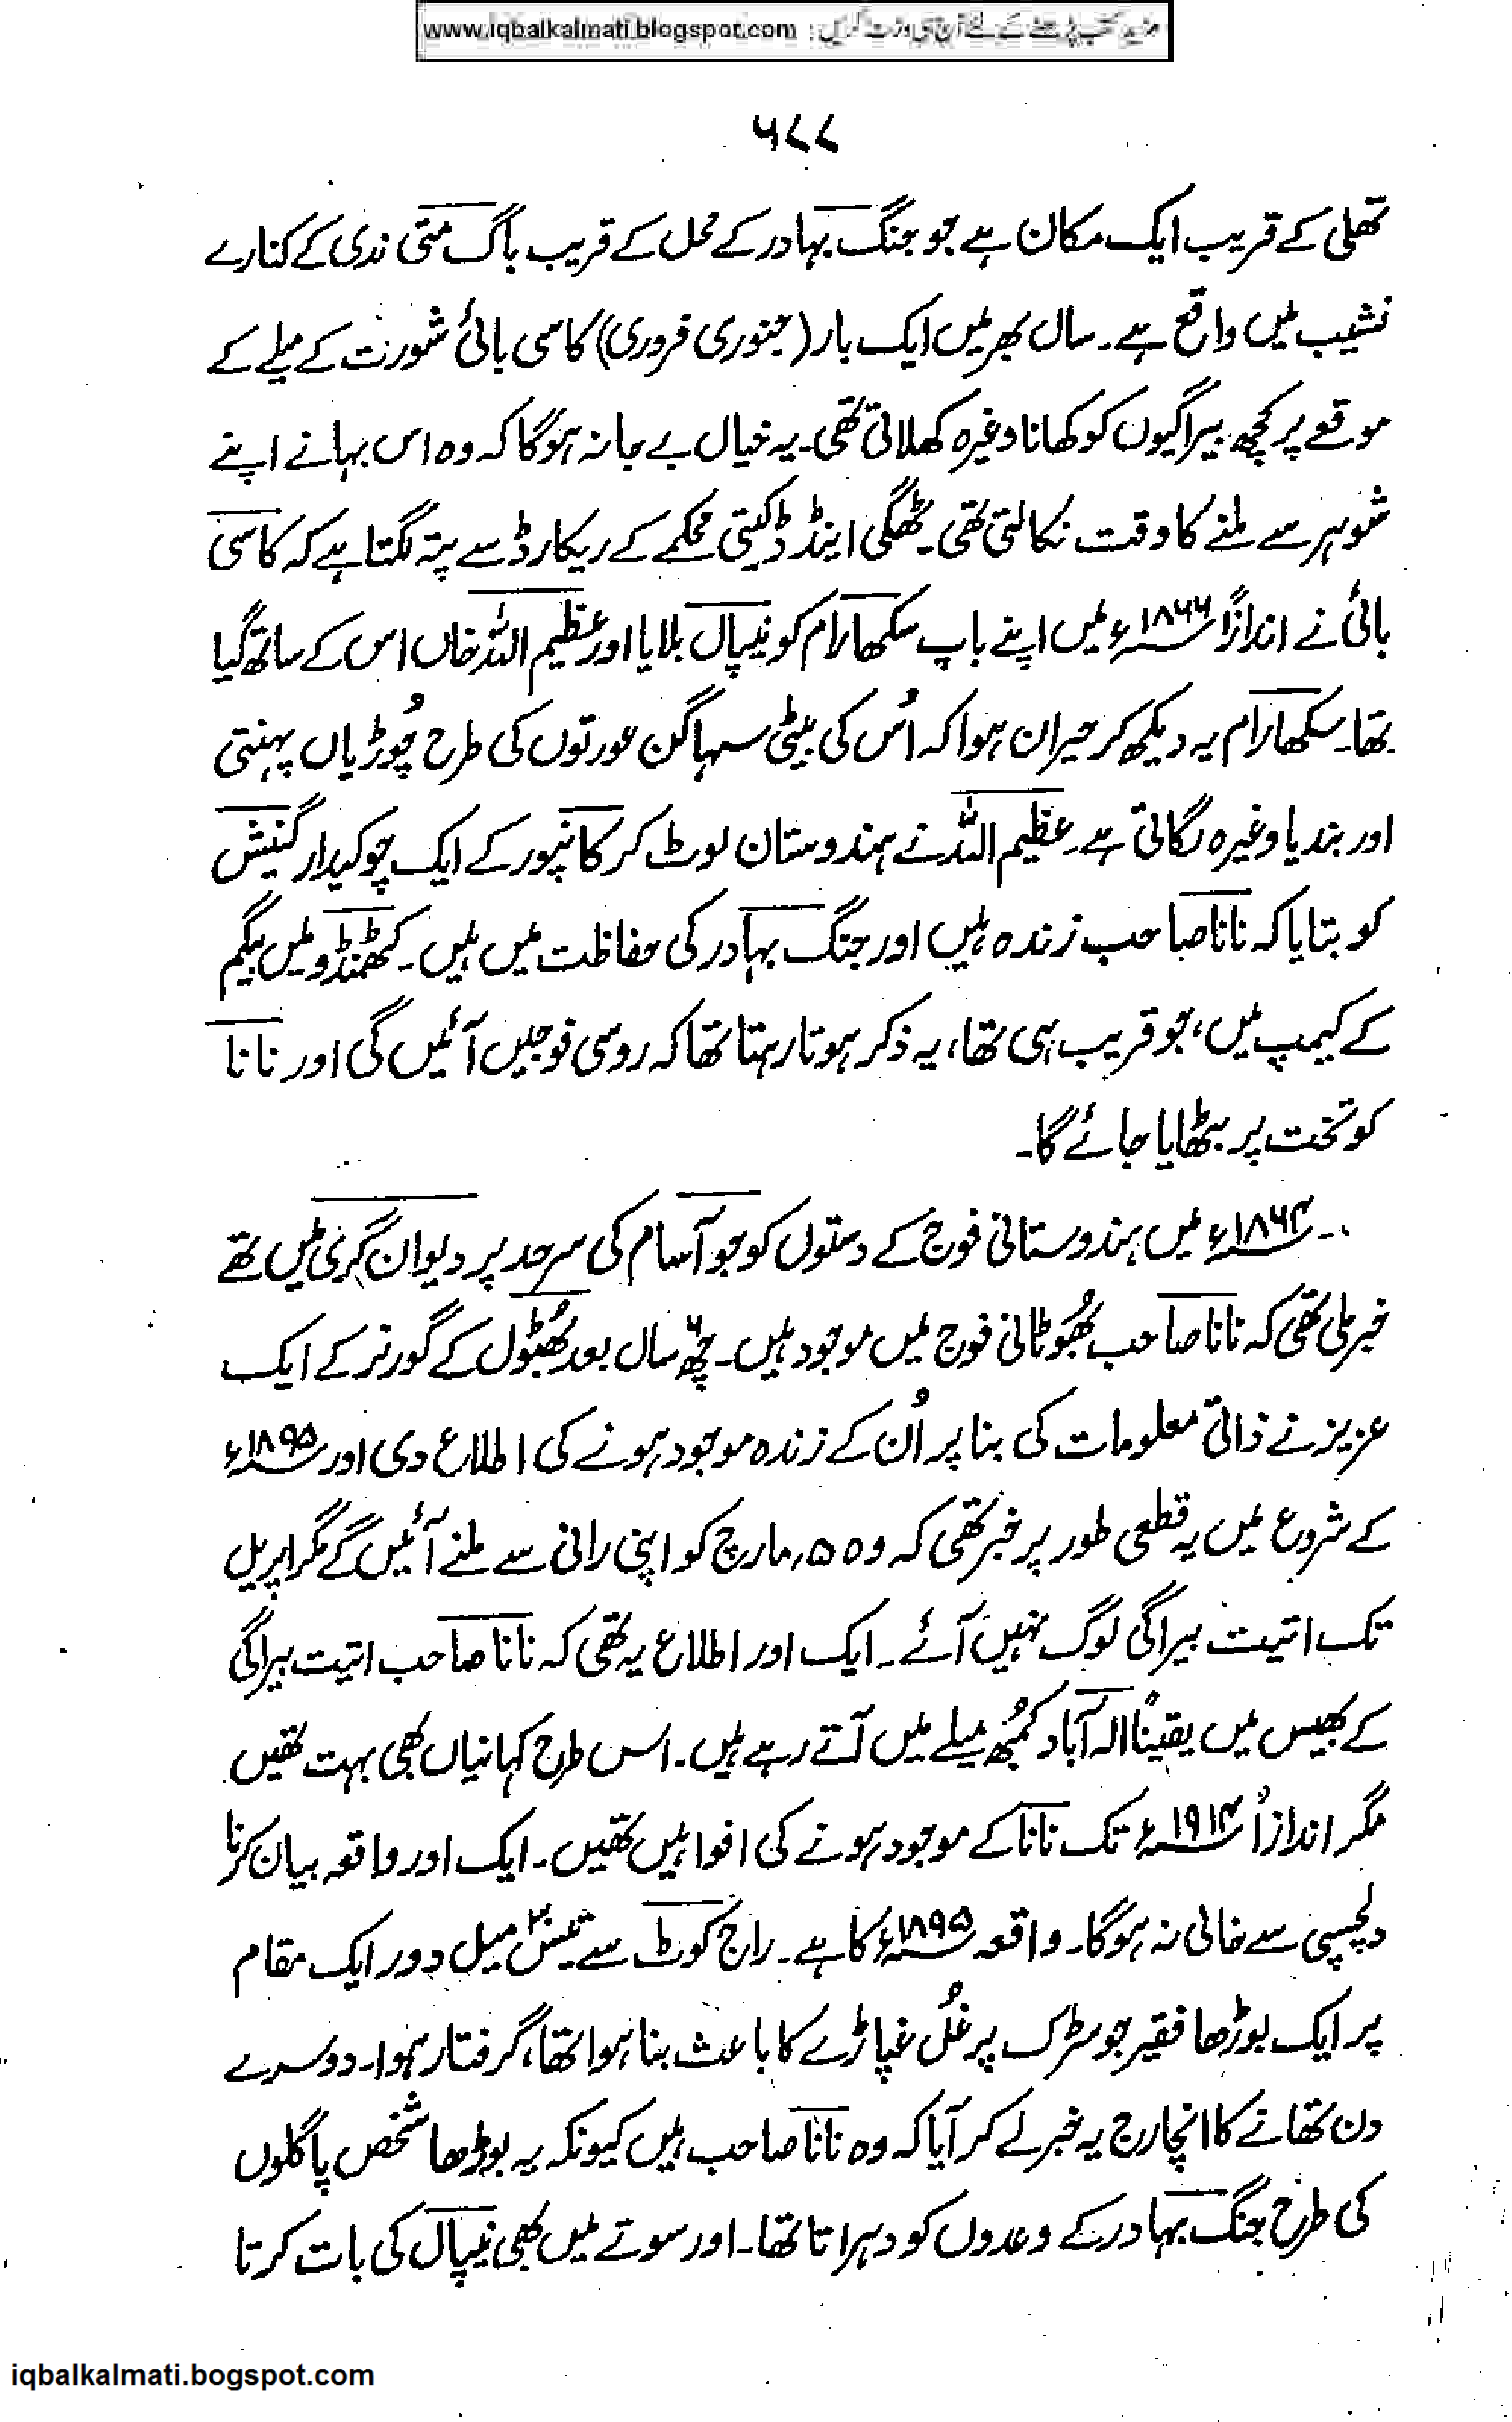 مزید کتب پڑھنے کے لئے آج ہی وزٹ کریں : www.iqbalkalmati.blogspot.com
۶۷۷
تھلی کے قریب ایک مکان ہے جو جنگ بہادر کے محل کے قریب باگ متی ندی کے کنارے
نشیب میں واقع ہے۔ سال بھر میں ایک بار (جنوری فروری) کاسی بائی شورت کے میلے کے
موقعے پر کچھ بیراگیوں کو کھانا وغیرہ کھلاتی تھی۔ یہ خیال بے جا نہ ہوگا کہ وہ اس بہانے اپنے
شوہر سے ملنے کا وقت نکالتی تھی۔ ٹھگی اینڈ ڈکیتی محکمے کے ریکارڈ سے پتہ لگتا ہے کہ کاسی
بائی نے اندازاً ۱۸۶۶ء میں اپنے باپ سکھارام کو نیپال بلایا اور عظیم اللہ خاں اس کے ساتھ گیا
تھا۔ سکھارام یہ دیکھ کر حیران ہوا کہ اُس کی بیٹی سہاگن عورتوں کی طرح چُوڑیاں پہنتی
اور بندیا وغیرہ لگاتی ہے۔ عظیم اللہ نے ہندوستان لوٹ کر کانپور کے ایک چوکیدار گنیش
کو بتایا کہ نانا صاحب زندہ ہیں اور جنگ بہادر کی حفاظت میں ہیں۔ کھٹمنڈو میں بیگم
کے کیمپ میں، جو قریب ہی تھا، یہ ذکر ہوتا رہتا تھا کہ روسی فوجیں آئیں گی اور نانا
کو تخت پر بٹھایا جائے گا۔
۱۸۶۴ء میں ہندوستانی فوج کے دستوں کو جو آسام کی سرحد پر دیوان گری میں تھے
خبر ملی تھی کہ نانا صاحب بھُوٹانی فوج میں موجود ہیں۔ چھ۶ سال بعد بھُٹول کے گورنر کے ایک
عزیز نے ذاتی معلومات کی بنا پر اُن کے زندہ موجود ہونے کی اطلاع دی اور ۱۸۹۵ء
کے شروع میں یہ قطعی طور پر خبر تھی کہ وہ ۵؍ مارچ کو اپنی رانی سے ملنے آئیں گے مگر اپریل
تک اتیت بیراگی لوگ نہیں آئے۔ ایک اور اطلاع یہ تھی کہ نانا صاحب اتیت بیراگی
کے بھیس میں یقیناً الہ آباد کُمبھ میلے میں آتے رہے ہیں۔ اس طرح کہانیاں بھی بہت تھیں
مگر اندازاً ۱۹۱۴ء تک نانا کے موجود ہونے کی افواہیں تھیں۔ ایک اور واقعہ بیان کرنا
دلچسپی سے خالی نہ ہوگا۔ واقعہ ۱۸۹۵ء کا ہے۔ راج کوٹ سے تیس۳۰ میل دور ایک مقام
پر ایک بوڑھا فقیر جو سڑک پر غُل غپاڑے کا باعث بنا ہوا تھا، گرفتار ہوا۔ دوسرے
دن تھانے کا انچارج یہ خبر لے کر آیا کہ وہ نانا صاحب ہیں کیونکہ یہ بوڑھا شخص پاگلوں
کی طرح جنگ بہادر کے وعدوں کو دہراتا تھا۔ اور سوتے میں بھی نیپال کی بات کرتا
iqbalkalmati.bogspot.com